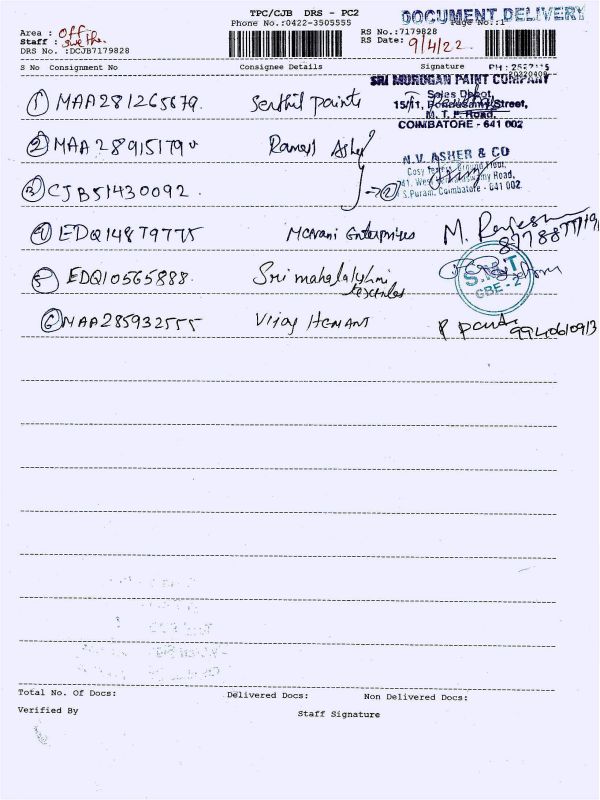 TPC/CJB DRS - PC2
DOCUMENT DELIVERY
Phone No.:0422-3505555
Page No.:1
Area : Off
Staff :
RS No.:7179828
RS Date: 9/4/22
DRS No. :DCJB7179828
S No Consignment No Consignee Details Signature
SRI MURUGAN PAINT COMPANY
Sales Depot,
15/11, Ponnusamy Street,
M. T. P. Road,
COIMBATORE - 641 002
① MAA281265679. Senthil paints
② MAA 28915179 Ramesh Asher
N.V. ASHER & CO
Cosy Ground Floor,
41, West Road,
S.Puram, Coimbatore - 641 002
③ CJB51430092. → ②
④ EDQ14879775 Enterprises M. Rajesh
⑤ EDQ10565888. Sri mahalakshmi
textiles
S.M.T
CBE - 2
⑥ MAA285932555 Vijay HEMANT
9940610913
Total No. Of Docs: Delivered Docs: Non Delivered Docs:
Verified By Staff Signature